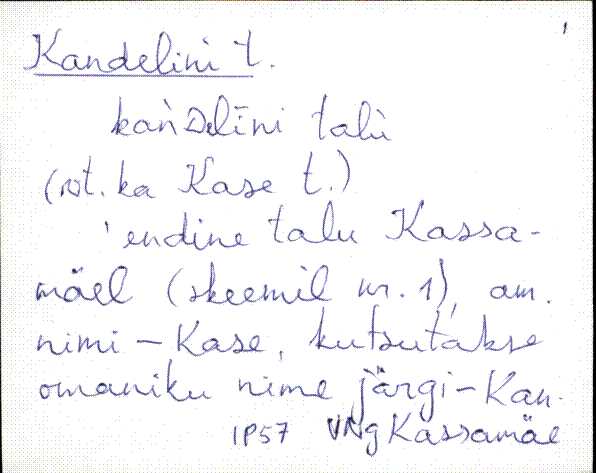 1
Kandelini t.
kan̄Delīni talù
(rot. ka Kase t.)
'endine talu Kassa-
mäel (skeemil nr. 1), am.
nimi – Kase, kutsutakse
omaniku nime järgi – Kan-
1957 VNg Kassamäe